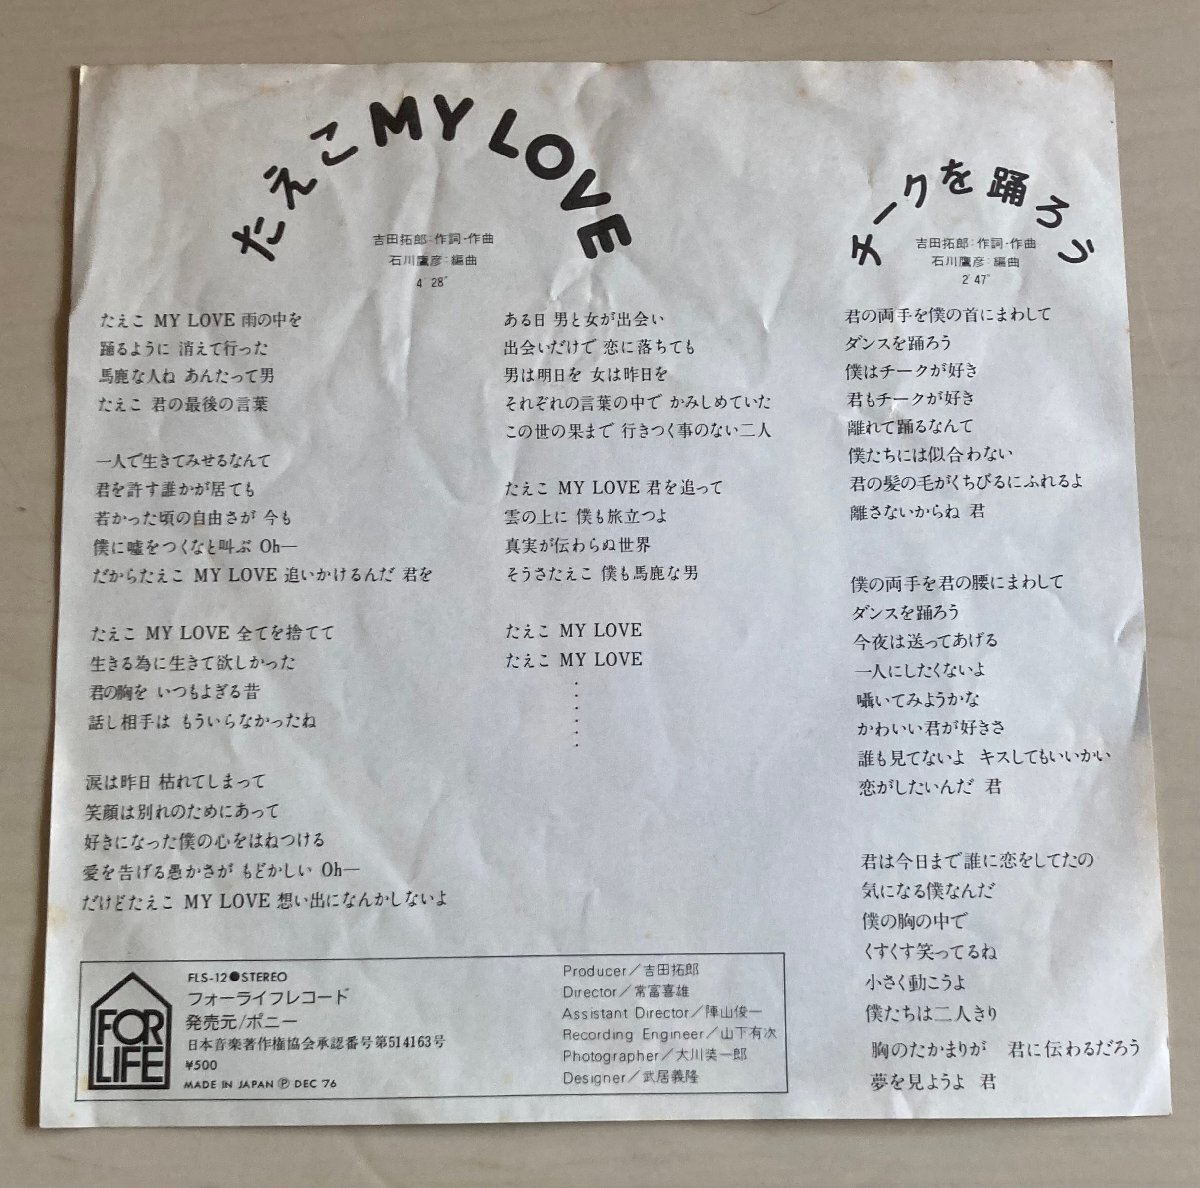 たえこ MY LOVE
吉田拓郎:作詞・作曲
石川鷹彦:編曲
4′28″
たえこ MY LOVE 雨の中を
踊るように 消えて行った
馬鹿な人ね あんたって男
たえこ 君の最後の言葉
一人で生きてみせるなんて
君を許す誰かが居ても
若かった頃の自由さが 今も
僕に嘘をつくなと叫ぶ Oh―
だからたえこ MY LOVE 追いかけるんだ 君を
たえこ MY LOVE 全てを捨てて
生きる為に生きて欲しかった
君の胸を いつもよぎる昔
話し相手は もういらなかったね
涙は昨日 枯れてしまって
笑顔は別れのためにあって
好きになった僕の心をはねつける
愛を告げる愚かさが もどかしい Oh―
だけどたえこ MY LOVE 想い出になんかしないよ
ある日 男と女が出会い
出会いだけで 恋に落ちても
男は明日を 女は昨日を
それぞれの言葉の中で かみしめていた
この世の果まで 行きつく事のない二人
たえこ MY LOVE 君を追って
雲の上に 僕も旅立つよ
真実が伝わらぬ世界
そうさたえこ 僕も馬鹿な男
たえこ MY LOVE
たえこ MY LOVE
・・・・・・・
チークを踊ろう
吉田拓郎:作詞・作曲
石川鷹彦:編曲
2′47″
君の両手を僕の首にまわして
ダンスを踊ろう
僕はチークが好き
君もチークが好き
離れて踊るなんて
僕たちには似合わない
君の髪の毛がくちびるにふれるよ
離さないからね 君
僕の両手を君の腰にまわして
ダンスを踊ろう
今夜は送ってあげる
一人にしたくないよ
囁いてみようかな
かわいい君が好きさ
誰も見てないよ キスしてもいいかい
恋がしたいんだ 君
君は今日まで誰に恋をしてたの
気になる僕なんだ
僕の胸の中で
くすくす笑ってるね
小さく動こうよ
僕たちは二人きり
胸のたかまりが 君に伝わるだろう
夢を見ようよ 君
FOR LIFE
FLS-12●STEREO
フォーライフレコード
発売元/ポニー
日本音楽著作権協会承認番号第514163号
¥500
MADE IN JAPAN Ⓟ DEC '76
Producer/吉田拓郎
Director/常富喜雄
Assistant Director/陣山俊一
Recording Engineer/山下有次
Photographer/大川装一郎
Designer/武居義隆